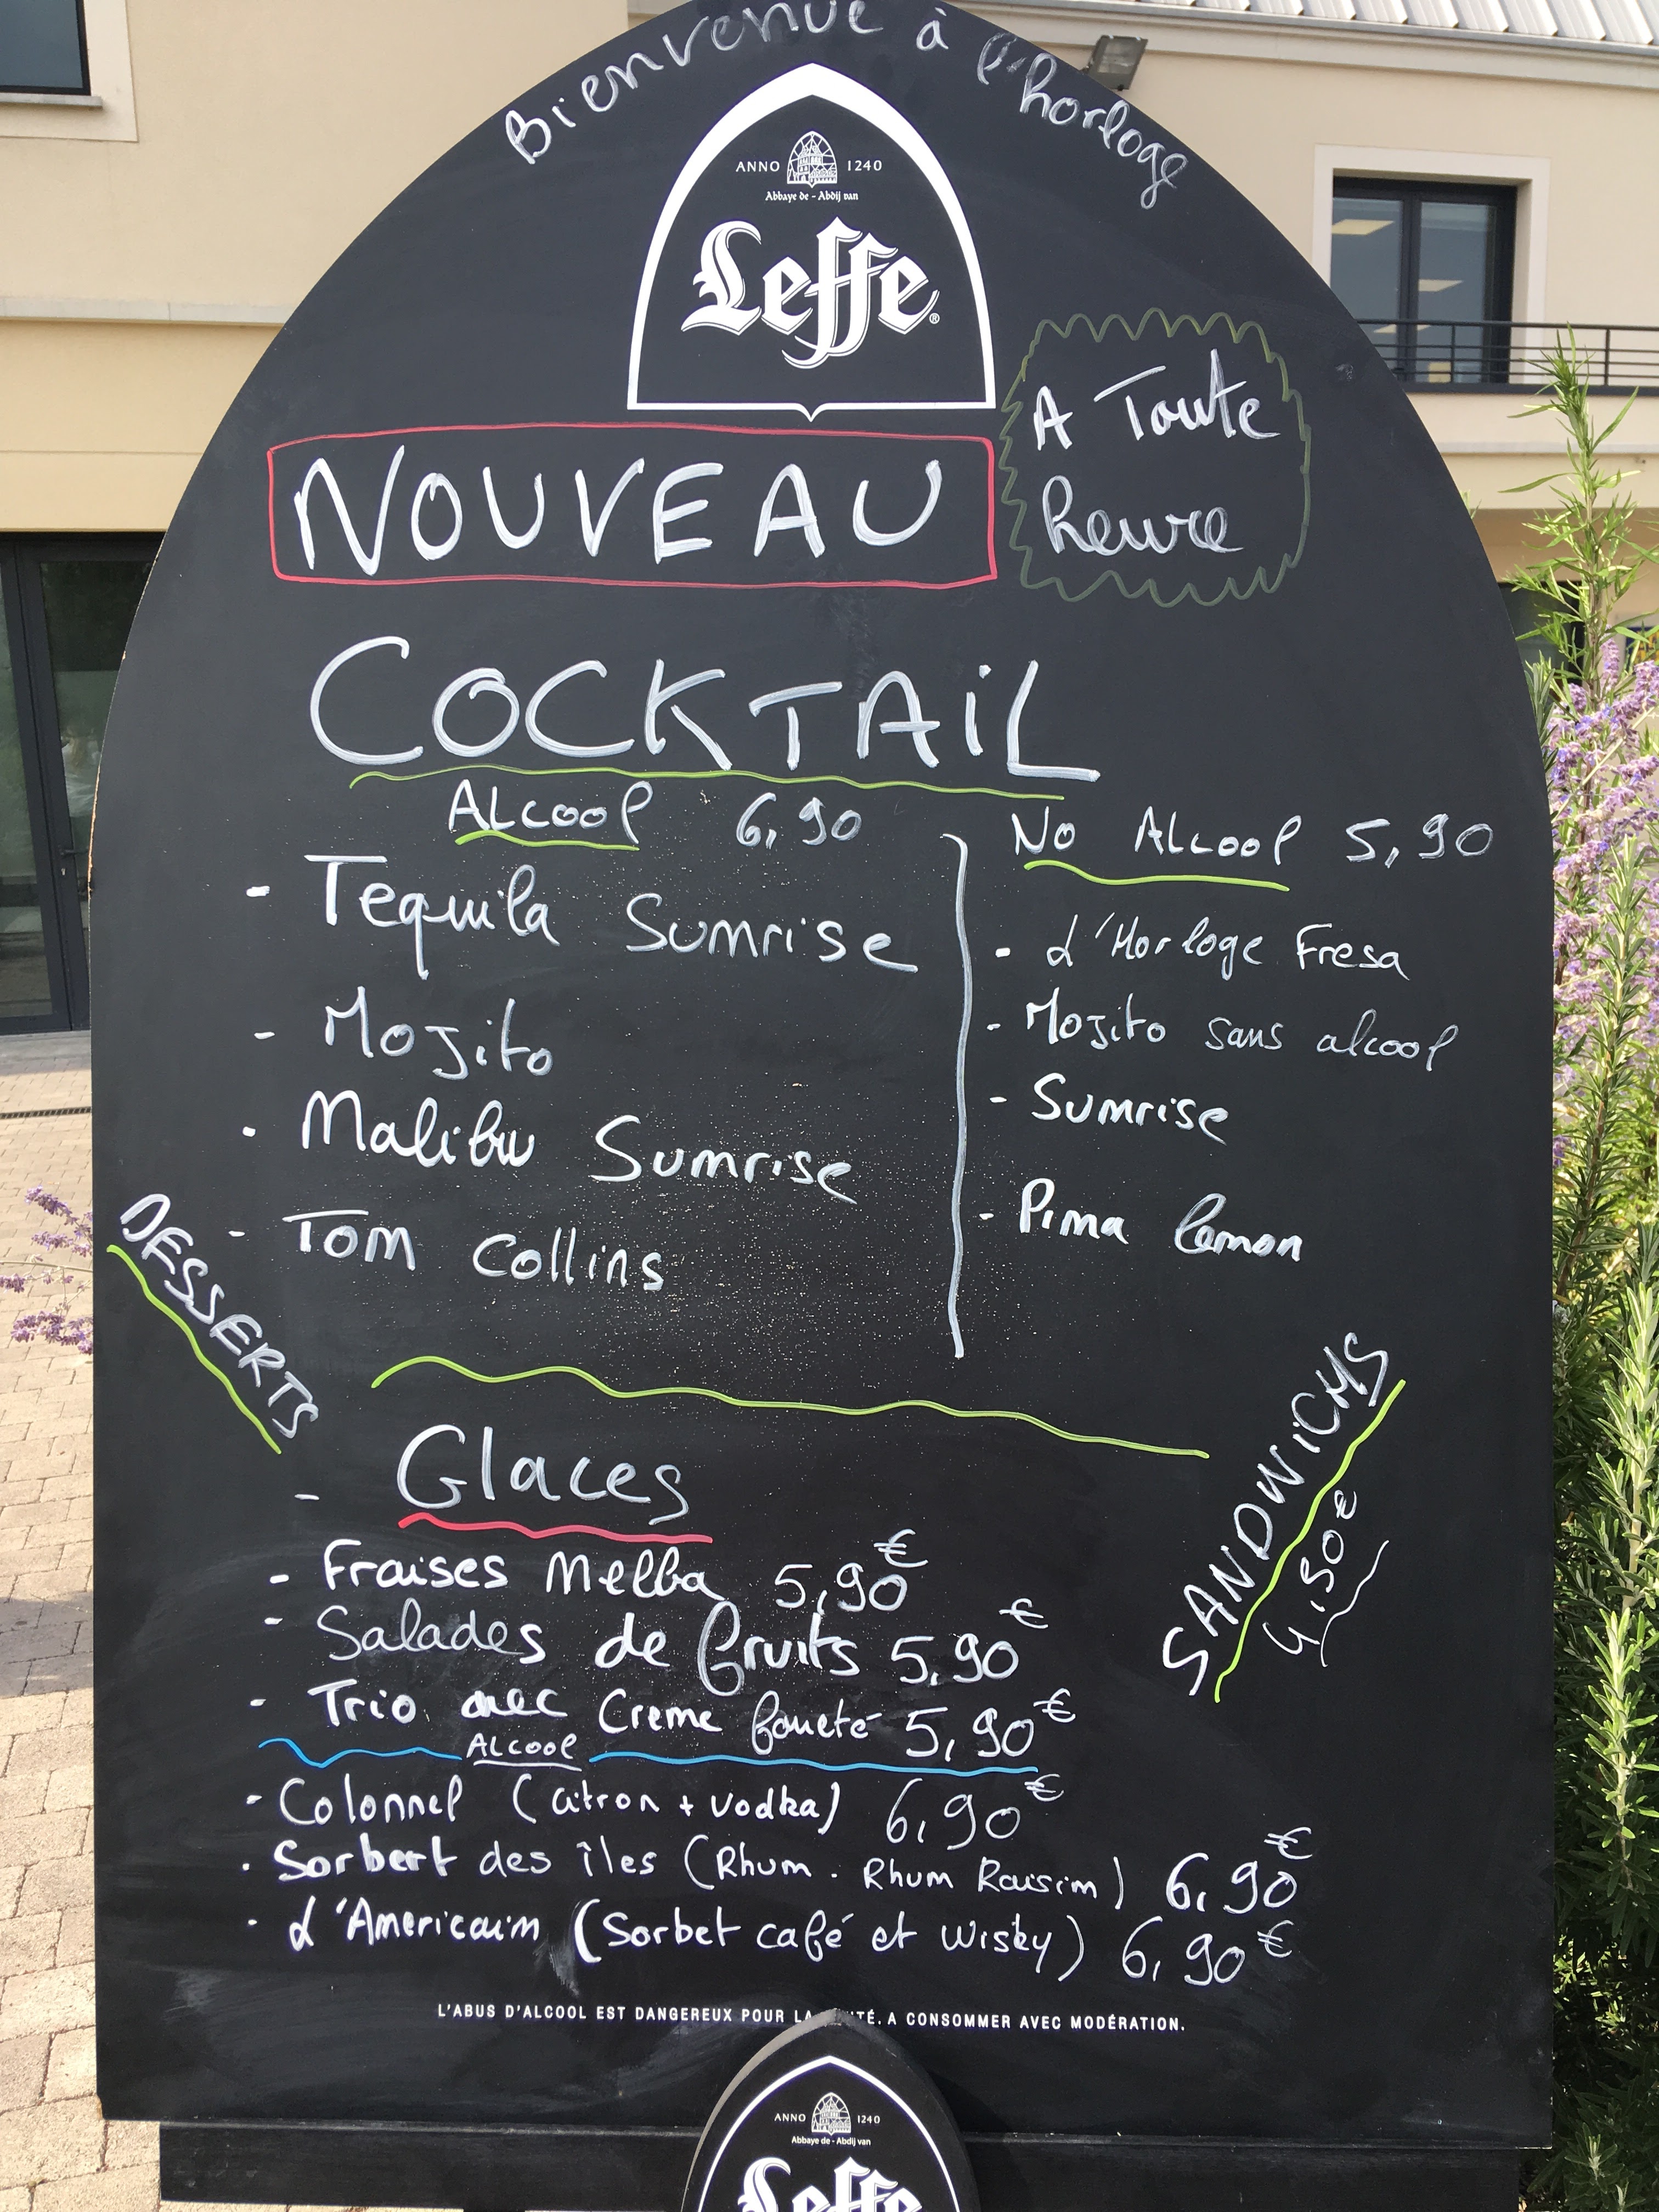 Bienvenue à l'horloge
ANNO 1240
Abbaye de - Abdij van
Leffe®
NOUVEAU
A Toute
heure
COCKTAiL
ALcool 6,90
- Tequila Sumrise
- Mojito
- Malibu Sumrise
- Tom Collins
No Alcool 5,90
- L'Horloge Fresa
- Mojito sans alcool
- Sumrise
- Pima lemon
DESSERTS
- Glaces
- Fraises Melba 5,90€
- Salades de fruits 5,90€
- Trio avec Creme foueté 5,90€
ALcool
- Colonnel (citron + vodka) 6,90€
- Sorbert des îles (Rhum. Rhum Raisim) 6,90€
- L'Americaim (Sorbet café et Wisky) 6,90€
SANDWiCHS
4,50€
L'ABUS D'ALCOOL EST DANGEREUX POUR LA TÉ. A CONSOMMER AVEC MODÉRATION.
ANNO 1240
Abbaye de - Abdij van
Leffe